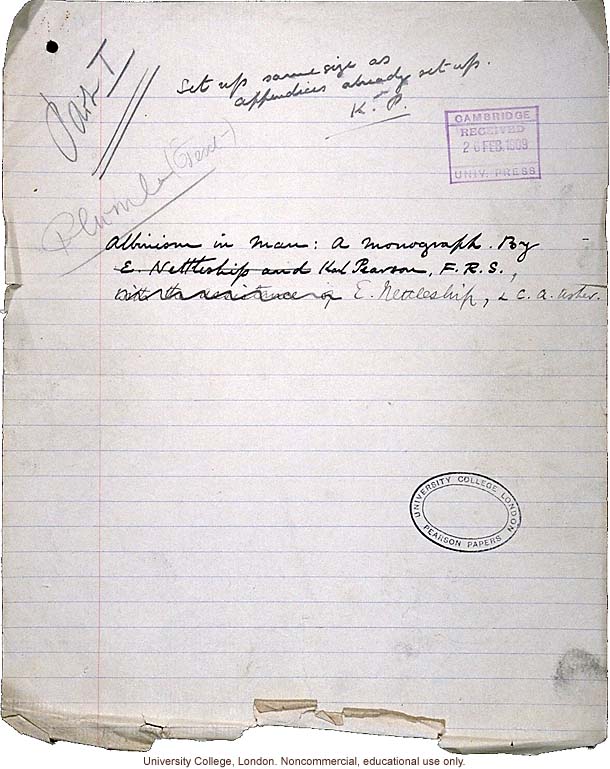 Part I
Set up same size as
appendices already set up.
K. P.
CAMBRIDGE
RECEIVED
26 FEB. 1909
UNIV. PRESS
(Text)
Albinism in Man: A Monograph. By
E. Nettleship and Karl Pearson, F.R.S.,
with the assistance of E. Nettleship, & C. A. Usher.
UNIVERSITY COLLEGE LONDON
PEARSON PAPERS
University College, London. Noncommercial, educational use only.